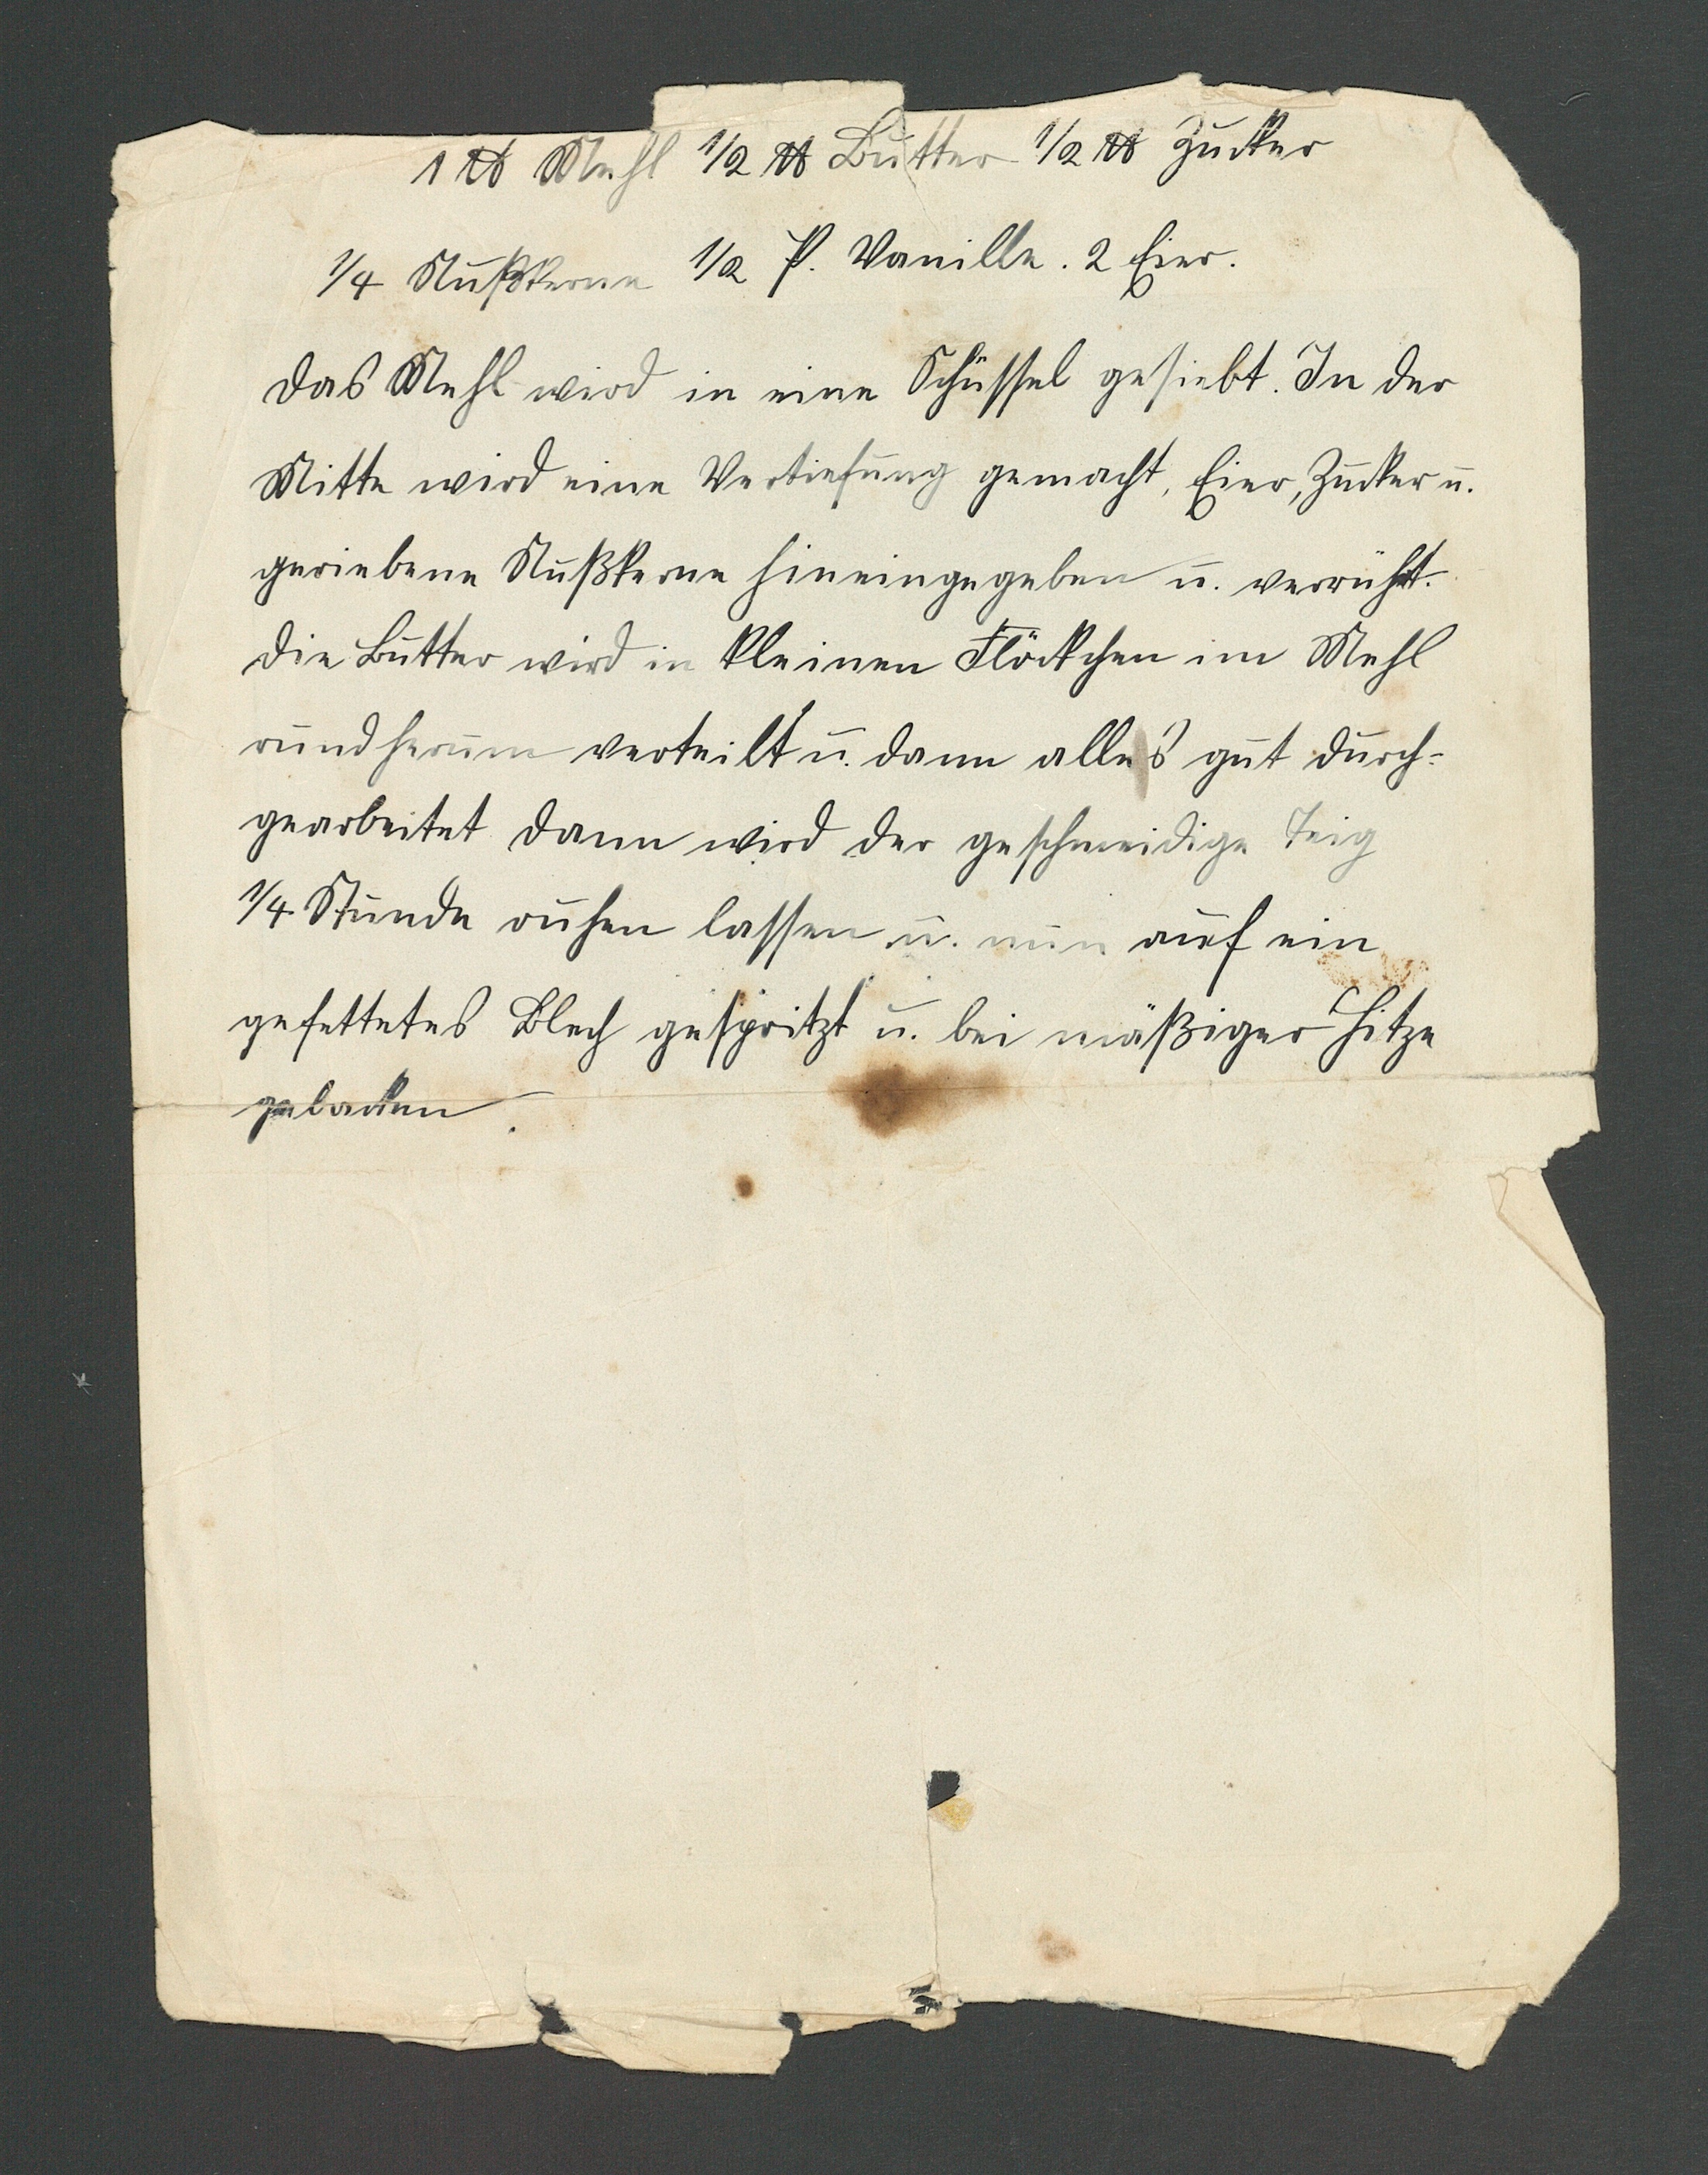 1 ℔ Mehl 1/2 ℔ Butter 1/2 ℔ Zucker
1/4 Nußkerne 1/2 P. Vanille. 2 Eier.
Das Mehl wird in eine Schüssel gesiebt. In der
Mitte wird eine Vertiefung gemacht, Eier, Zucker u.
geriebene Nußkerne hineingegeben u. verrührt.
Die Butter wird in kleinen Flöckchen im Mehl
rundherum verteilt u. dann alles gut durch-
gearbeitet dann wird der geschmeidige Teig
1/4 Stunde ruhen lassen u. nun auf ein
gefettetes Blech gespritzt u. bei mäßiger Hitze
gebacken.